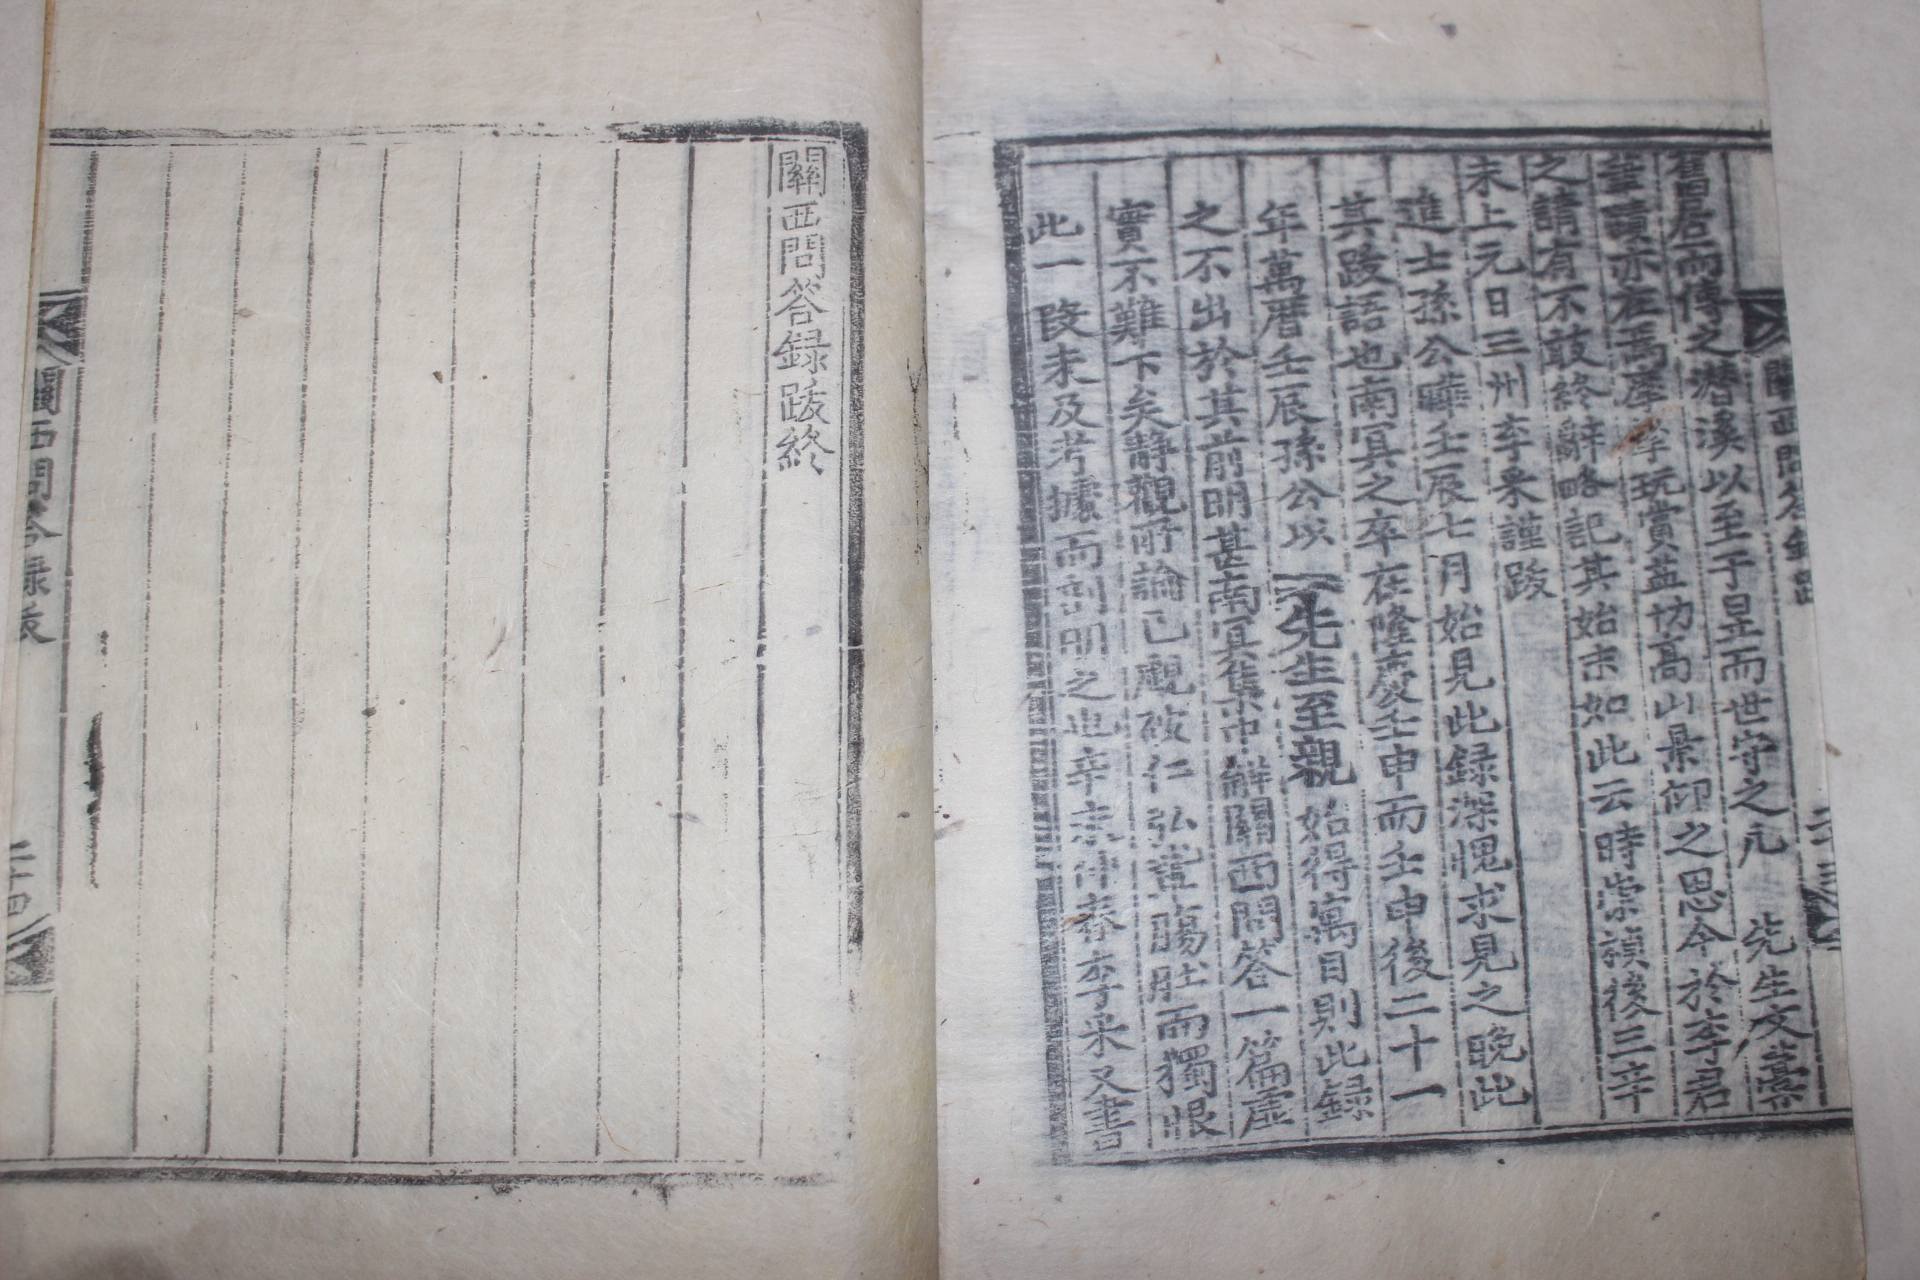 舊居而傳之潛溪以至于是而世守之尤 先生文藁
筆蹟亦在焉摩挲玩賞益切高山景仰之思今於李君
之請有不敢終辭略記其始末如此云時崇禎後三辛
未上元日三州李采謹跋
進士孫公曄壬辰七月始見此録深愧求見之晚此
其跋語也南冥之卒在隆慶壬申而壬申後二十一
年萬曆壬辰孫公以 先生至親始得寓目則此録
之不出於其前明甚南冥集中解關西問答一篇虛
實不難下矣靜觀所論已覷破仁弘肚而獨恨
此一段未及考據而剖明之也辛未仲春李采又書
關西問答録跋
二十三
關西問答録跋終
關西問答録跋
二十四